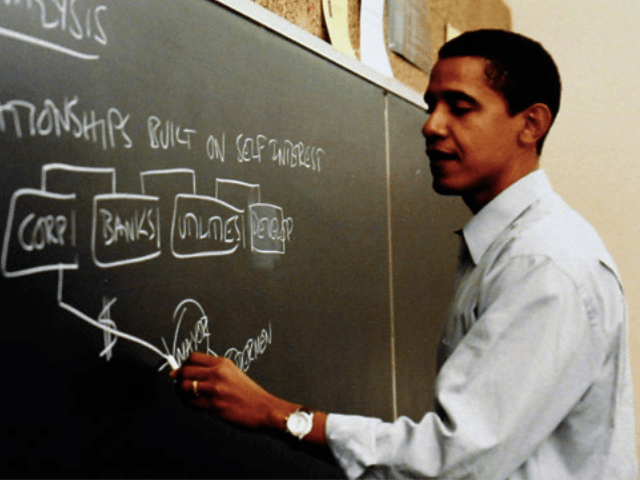 ANALYSIS
ATIONSHIPS BUILT ON SELF INTEREST
CORP BANKS UTILITIES DEVELOP
$
MAYOR